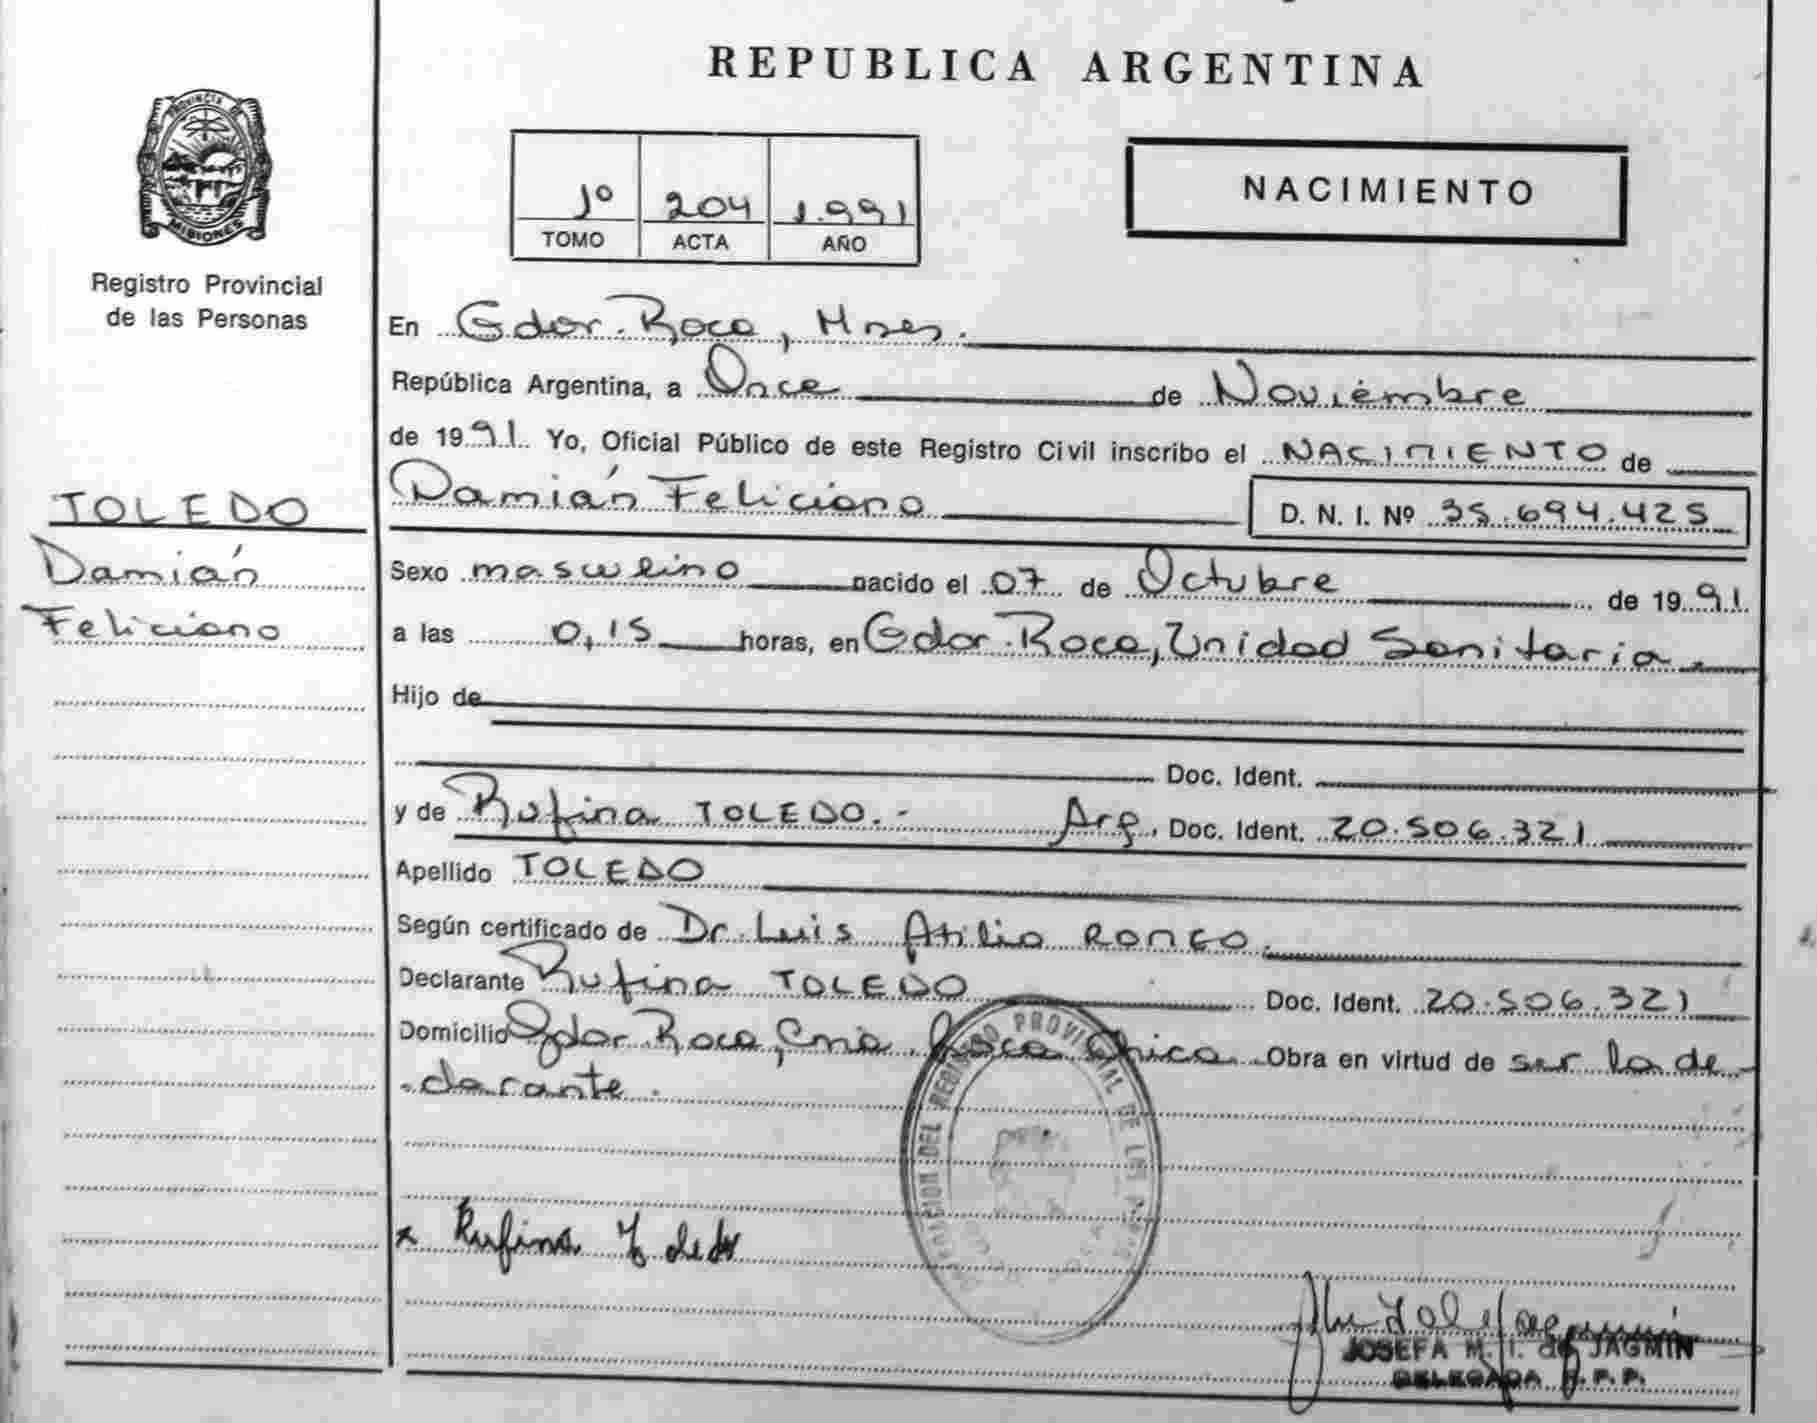 REPUBLICA ARGENTINA
PROVINCIA DE MISIONES
Registro Provincial
de las Personas
1º 204 1.991
TOMO ACTA AÑO
NACIMIENTO
En Gdor. Roca, Mnes.
República Argentina, a Once de Noviembre
de 1991. Yo, Oficial Público de este Registro Civil inscribo el NACIMIENTO de
Damián Feliciano D. N. I. Nº 35.694.425
TOLEDO
Damián
Feliciano
Sexo masculino nacido el 07 de Octubre de 1991.
a las 0,15 horas, en Gdor. Roca, Unidad Sanitaria.
Hijo de
Doc. Ident.
y de Rufina TOLEDO.- Arg. Doc. Ident. 20.506.321
Apellido TOLEDO
Según certificado de Dr. Luis Atilio RONCO.
Declarante Rufina TOLEDO Doc. Ident. 20.506.321
Domicilio Gdor Roca, Cnia. Roca Chica Obra en virtud de ser la de-
clarante.
DEL REGISTRO PROVINCIAL DE LAS
x Rufina Toledo
JOSEFA M. I. de JAGMIN
DELEGADA R.P.P.